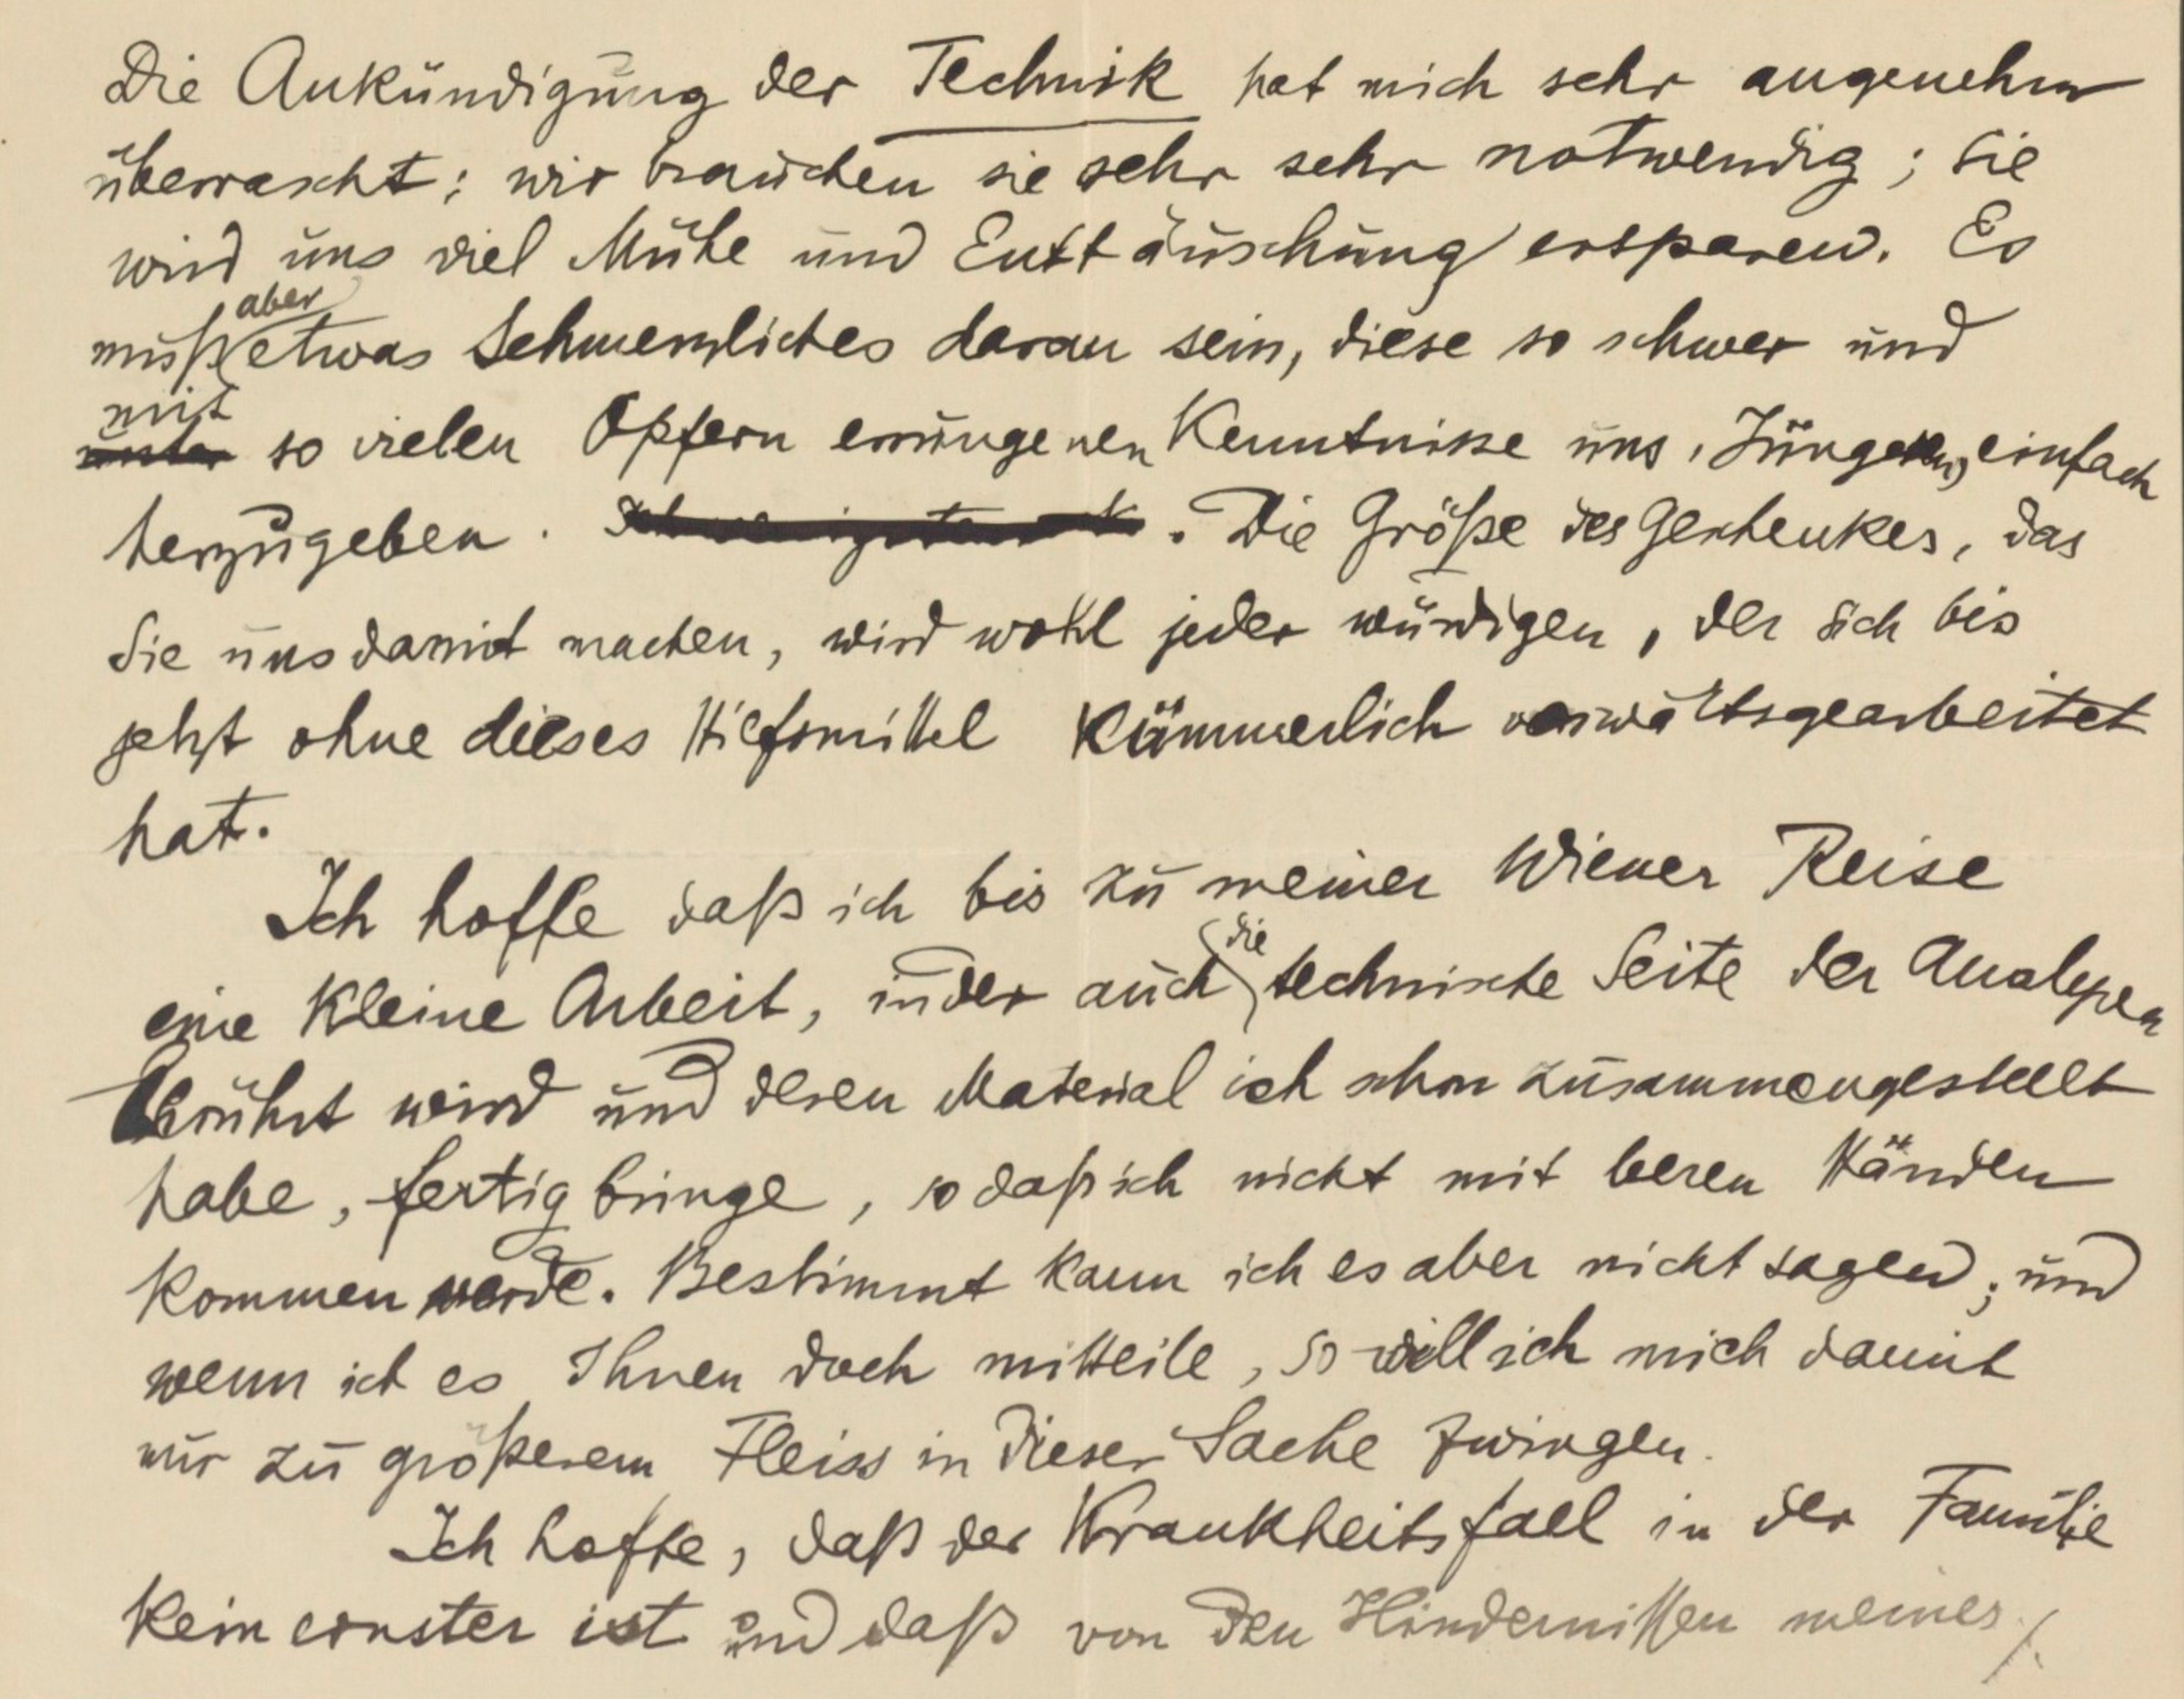 Die Ankündigung der Technik hat mich sehr angenehm
überrascht; wir brauchen sie sehr sehr notwendig; sie
wird uns viel Mühe und Enttäuschung ersparen. Es
muß aber etwas Schmerzliches daran sein, diese so schwer und
mit so vielen Opfern errungenen Kenntnisse uns, Jüngern, einfach
herzugeben. Die Größe des Geschenkes, das
Sie uns damit machen, wird wohl jeder würdigen, der sich bis
jetzt ohne dieses Hilfsmittel kümmerlich vorwärtsgearbeitet
hat.
Ich hoffe daß ich bis zu meiner Wiener Reise
eine kleine Arbeit, in der auch die technische Seite der Analysen
berührt wird und deren Material ich schon zusammengestellt
habe, fertig bringe, so daß ich nicht mit leeren Händen
kommen werde. Bestimmt kann ich es aber nicht sagen; und
wenn ich es Ihnen doch mitteile, so will ich mich damit
nur zu größerem Fleiss in dieser Sache zwingen.
Ich hoffe, daß der Krankheitsfall in der Familie
kein ernster ist und daß von den Hindernissen meines